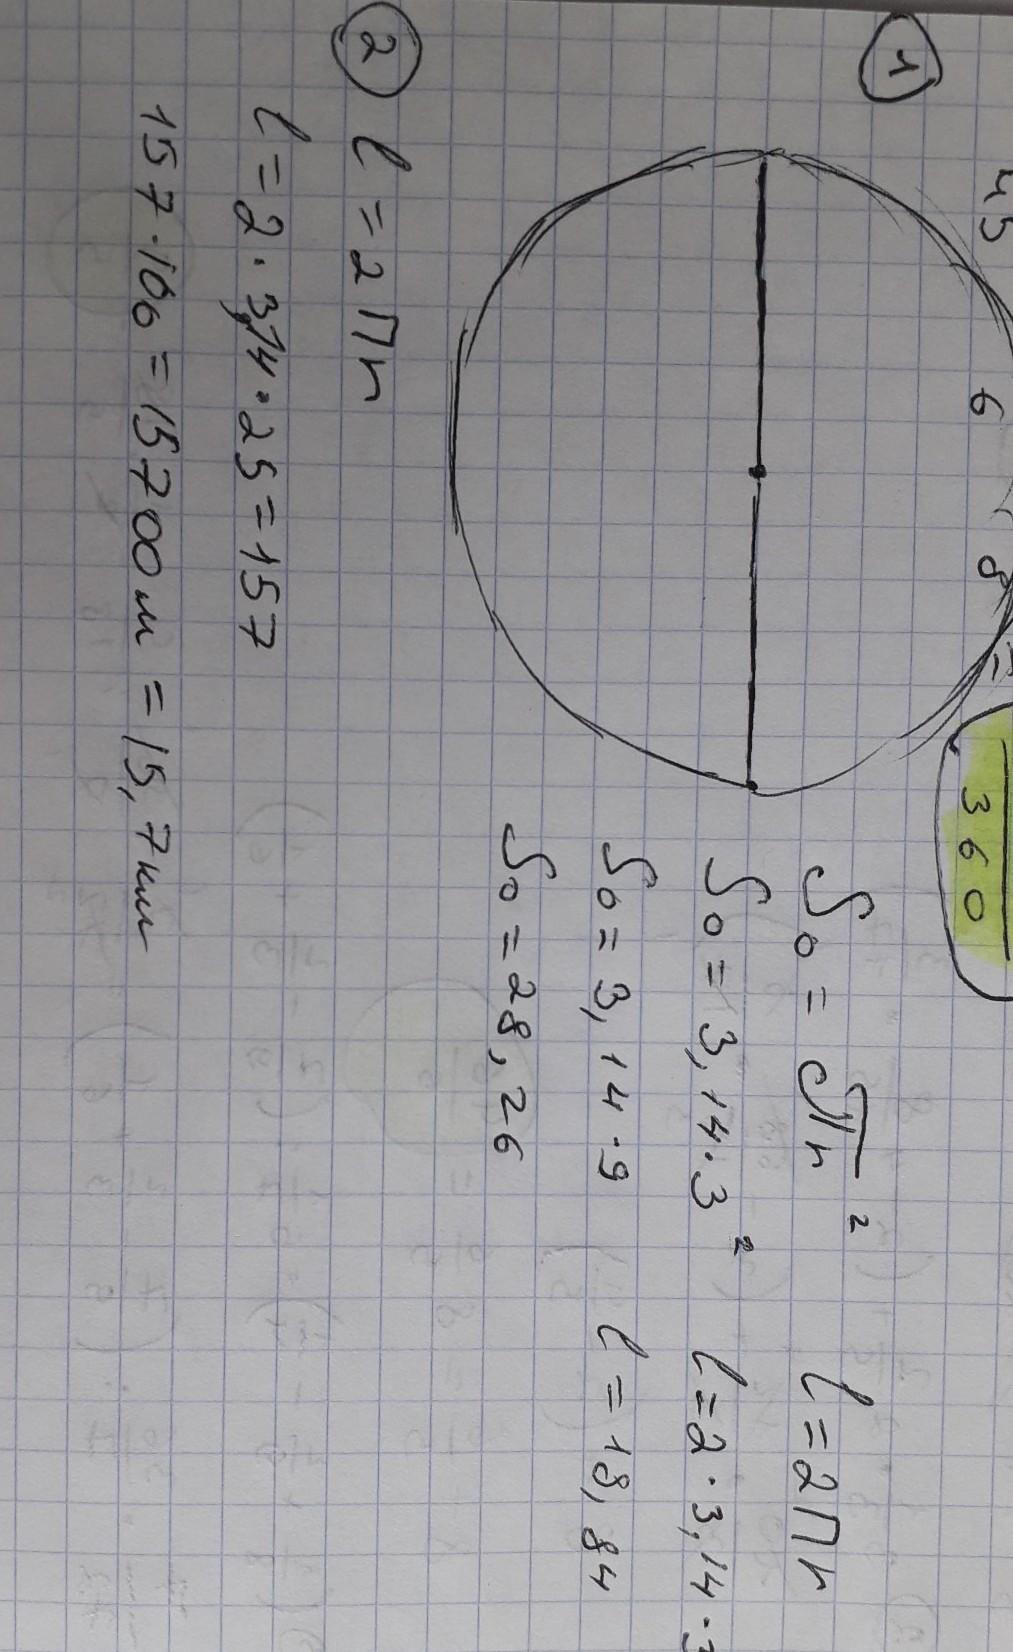 45 6 8 =
360
1
S₀ = πr²
l = 2Пr
S₀ = 3,14·3²
l = 2·3,14·3
S₀ = 3,14·9
l = 18,84
S₀ = 28,26
2
l = 2Пr
l = 2·3,14·25 = 157
157·100 = 15700м = 15,7км